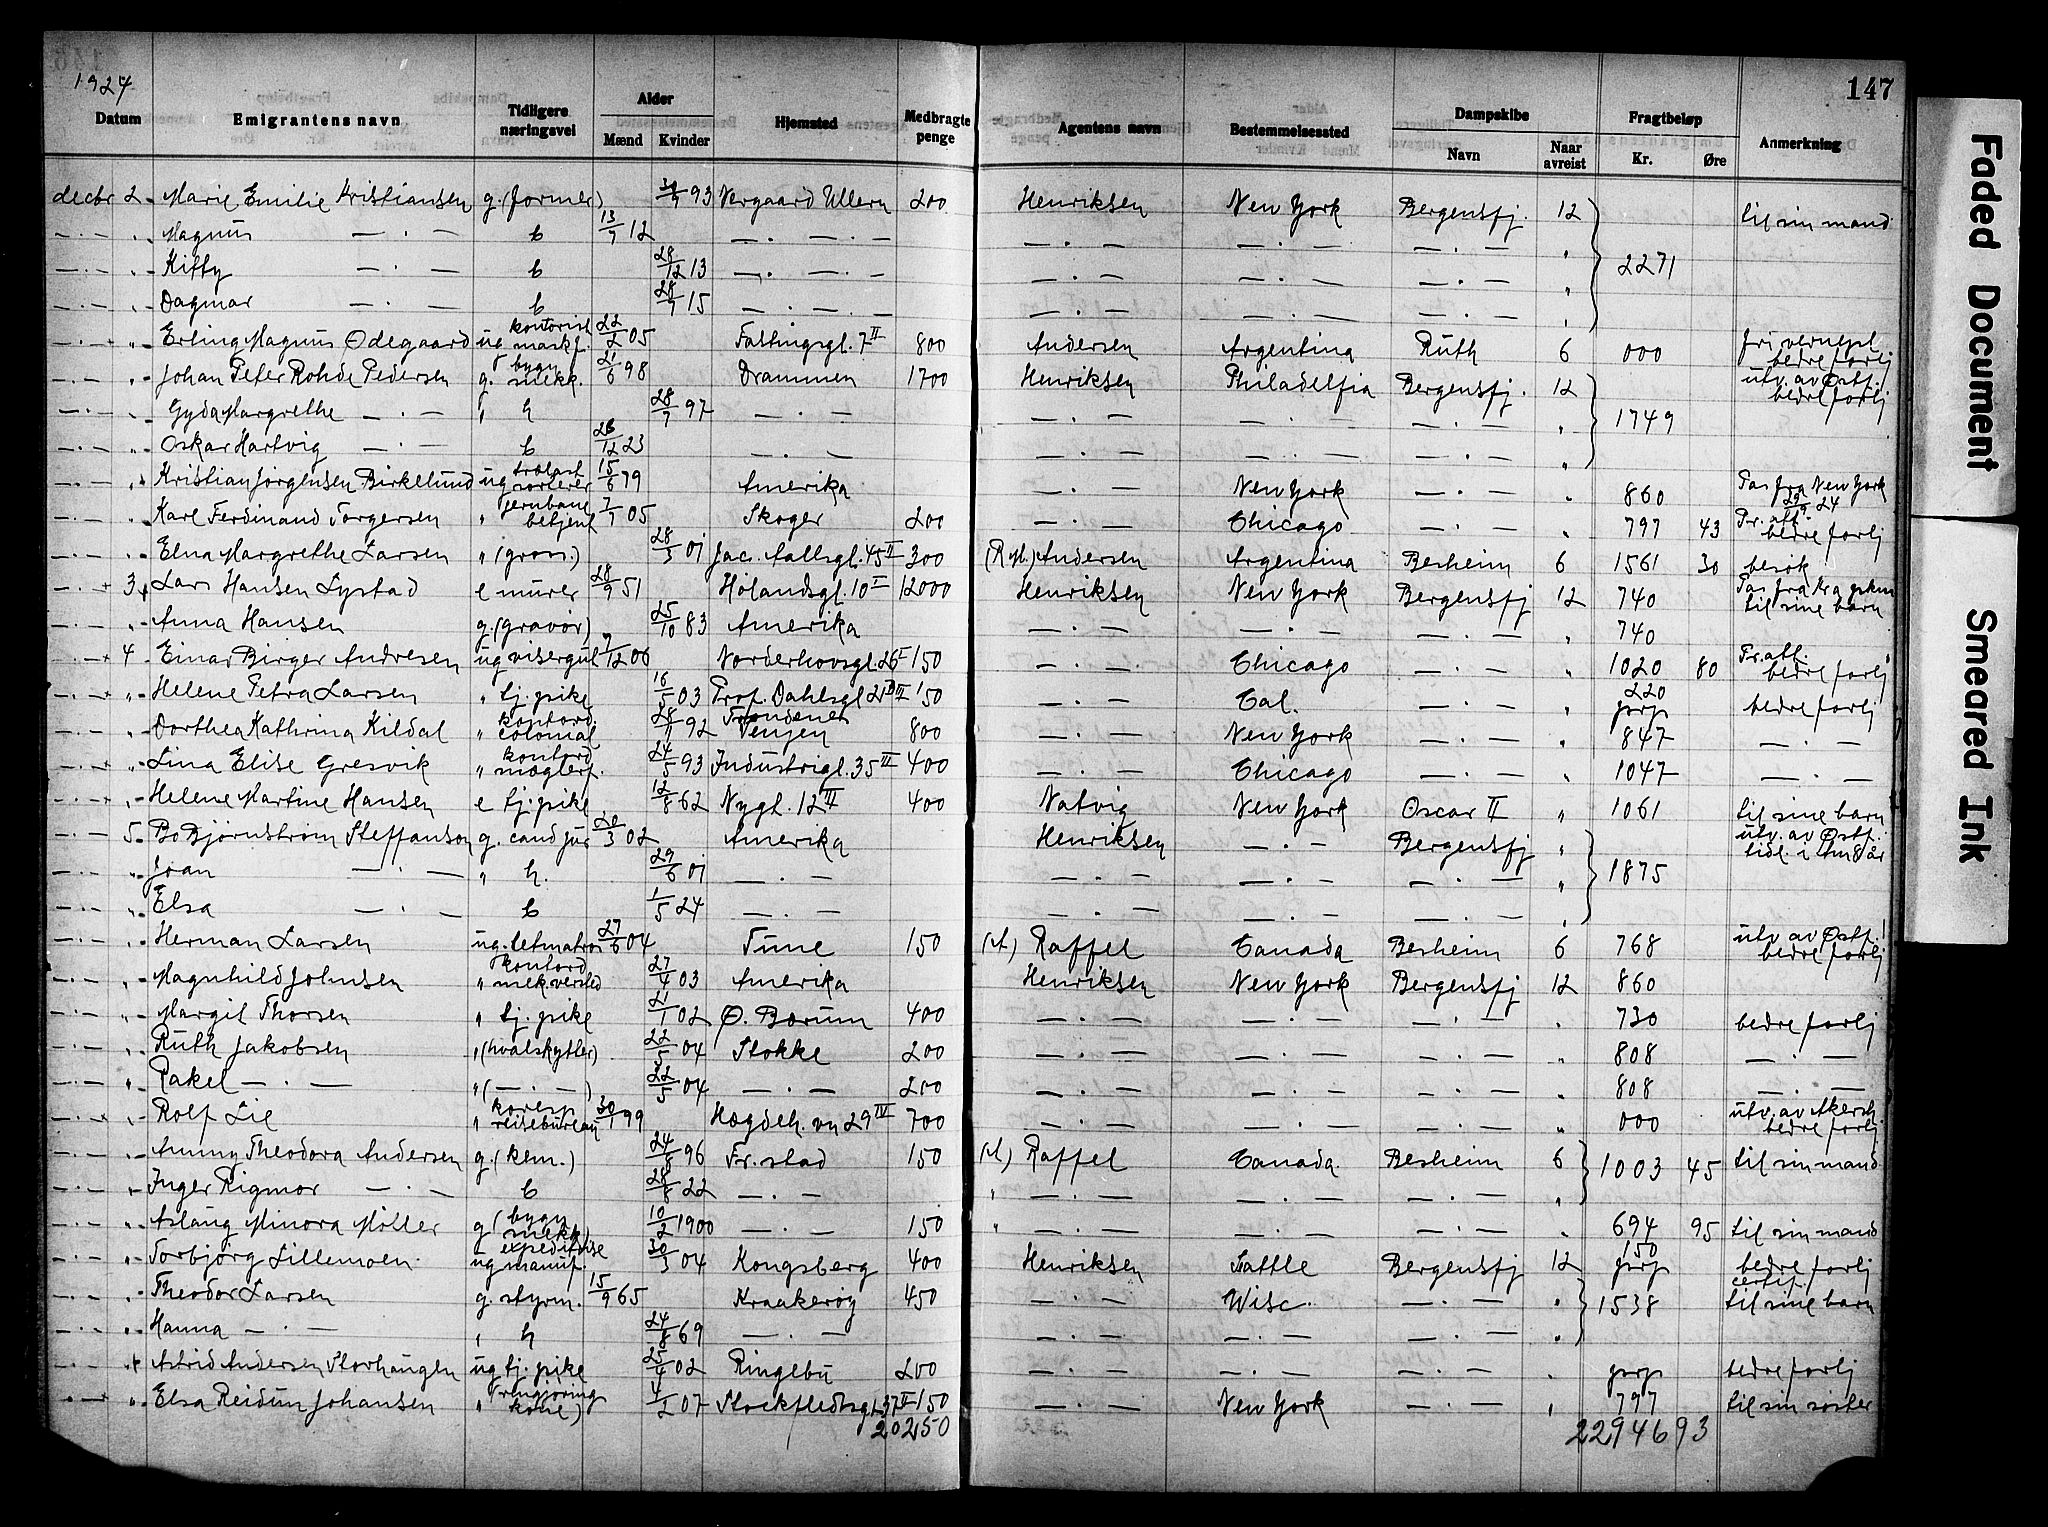 147
1924
Datum Emigrantens navn Tidligere næringsvei Alder Mænd Kvinder Hjemsted Medbragte penge Agentens navn Bestemmelsessted Dampskibe Navn Naar avreist Fragtbeløp Kr. Øre Anmerkning
decbr 2 Marie Emilie Kristiansen g. (former) 93 Vergaard Ullern 200 Henriksen New York Bergensfj. 12 til sin mand
" Magnus — . — b 13/7 12 — . — . — — . — — . — — . — "
" Kitty — . — b 28/12 13 — . — . — — . — — . — — . — " 2271
" Dagmar — . — b 28/7 15 — . — . — — . — — . — — . — "
" Erling Magnus Ødegaard ug kontorist 22/2 05 Fastingsgt. 7 II 800 Andersen Argentina Ruth 6 000 fri bedre forlj
" Johan Peter Rohde Pedersen g. bygn mekk. 21/6 98 Drammen 1700 Henriksen Philadelfia Bergensfj. 12 utv. av Østf. bedre forlj
" Gyda Margrethe — . — " h 28/7 97 — . — — . — — . — — . — " 1749
" Oskar Hartvig — . — b 26/12 23 — . — — . — — . — — . — "
" Kristian Jörgensen Birkelund ug trælast sorterer 15/6 79 Amerika — . — New York — . — " 860 Pas fra New York 29/9 24
" Karl Ferdinand Torgersen " jernbane betjent 7/7 05 Skoger 200 — . — Chicago — . — " 797 43 Fr. att. bedre forlj
" Elna Margrethe Larsen " (gross.) 28/3 01 Jac. Aallsgt. 45 II 300 Andersen Argentina Besheim 6 1561 30 besøk
3 Lars Hansen Lystad e murer 28/9 51 Hølandsgt. 10 I 12000 Henriksen New York Bergensfj 12 740 Pas fra til sine barn
" Anna Hansen g. (gravør) 25/10 83 Amerika — . — — . — — . — " 740
4 Einar Birger Andresen ug visergut 7/12 06 Norderhovsgt. 26 I 150 — . — Chicago — . — " 1020 80 Fr. att. bedre forlj
" Helene Petra Larsen " tj. pike 16/5 03 Prof. Dahlsgt 21 150 — . — Cal. — . — " 220 bedre forlj
" Dorthea Kathrina Kildal " kontord. colonial 92 800 — . — New York — . — " 847 — . —
" Lina Elise Gresvik " kontord mæglerf. 24/5 93 Industrigt. 35 III 400 — . — Chicago — . — " 1047 — . —
" Helene Martine Hansen e tj. pike 12/8 62 Nygt. 12 III 400 Natvig New York Oscar II " 1061 til sine barn
5 Bo Bjørnstrøm Steffanson g. cand jur 20/3 02 Amerika Henriksen — . — Bergensfj " utv. av Østf. tidl. i Am 8 år
" Joan — . — " h. 29/6 01 — . — — . — — . — — . — " 1875
" Elsa — . — b 1/5 24 — . — — . — — . — — . — "
" Herman Larsen ug. letmatros 27/6 04 Tune 150 Raffel Canada Besheim 6 768 utv. av Østf. bedre forlj
" Magnhild Johnsen " kontord mek. versted 27/4 03 Amerika Henriksen New York Bergensfj 12 860
" Margit Thorsen " tj. pike 21/1 02 Ø. Bærum 400 — . — — . — — . — " 730 bedre forlj
" Ruth Jakobsen " (hvalskytter) 22/5 04 Stokke 200 — . — — . — — . — " 808 — . —
" Rakel — . — " (— . —) 22/5 04 — . — 200 — . — — . — — . — " 808 — . —
" Rolf Lie " koresp reisebureau 30/1 99 Hægdeh. vn 29 IV 700 — . — — . — — . — " 000 utv. av Akersh bedre forlj
" Anny Theodora Andersen g. (kem.) 24/8 96 Fr. stad 150 Raffel Canada Besheim 6 1003 45 til sin mand
" Inger Rigmor — . — b 28/8 22 — . — " — . — — . — — . — "
" Aslaug Minora Møller g (bygn mekk) 10/2 1900 — . — 150 " — . — — . — — . — " 694 95 til sin mand
" Torbjørg Lillemoen ug expeditrise manuf. 30/3 04 Kongsberg 400 Henriksen Sattle Bergensfj 12 150 bedre forlj
" Theodor Larsen g. styrm. 15/9 65 Kraakerøy 450 — . — Wisc. — . — " 1538 certif. til sine barn
" Hanna — . — " h 24/8 69 — . — — . — — . — — . — "
" Astrid Andersen Storhaugen ug tj. pike 25/4 02 Ringebu 200 — . — — . — — . — " bedre forlj
" Elsa Reidun Johansen " (rengjøring kone) 4/2 07 Stockfledtsgt 37 II 150 — . — New York — . — " 797 til sin søster
20250 22946 93
Faded Document
Smeared Ink